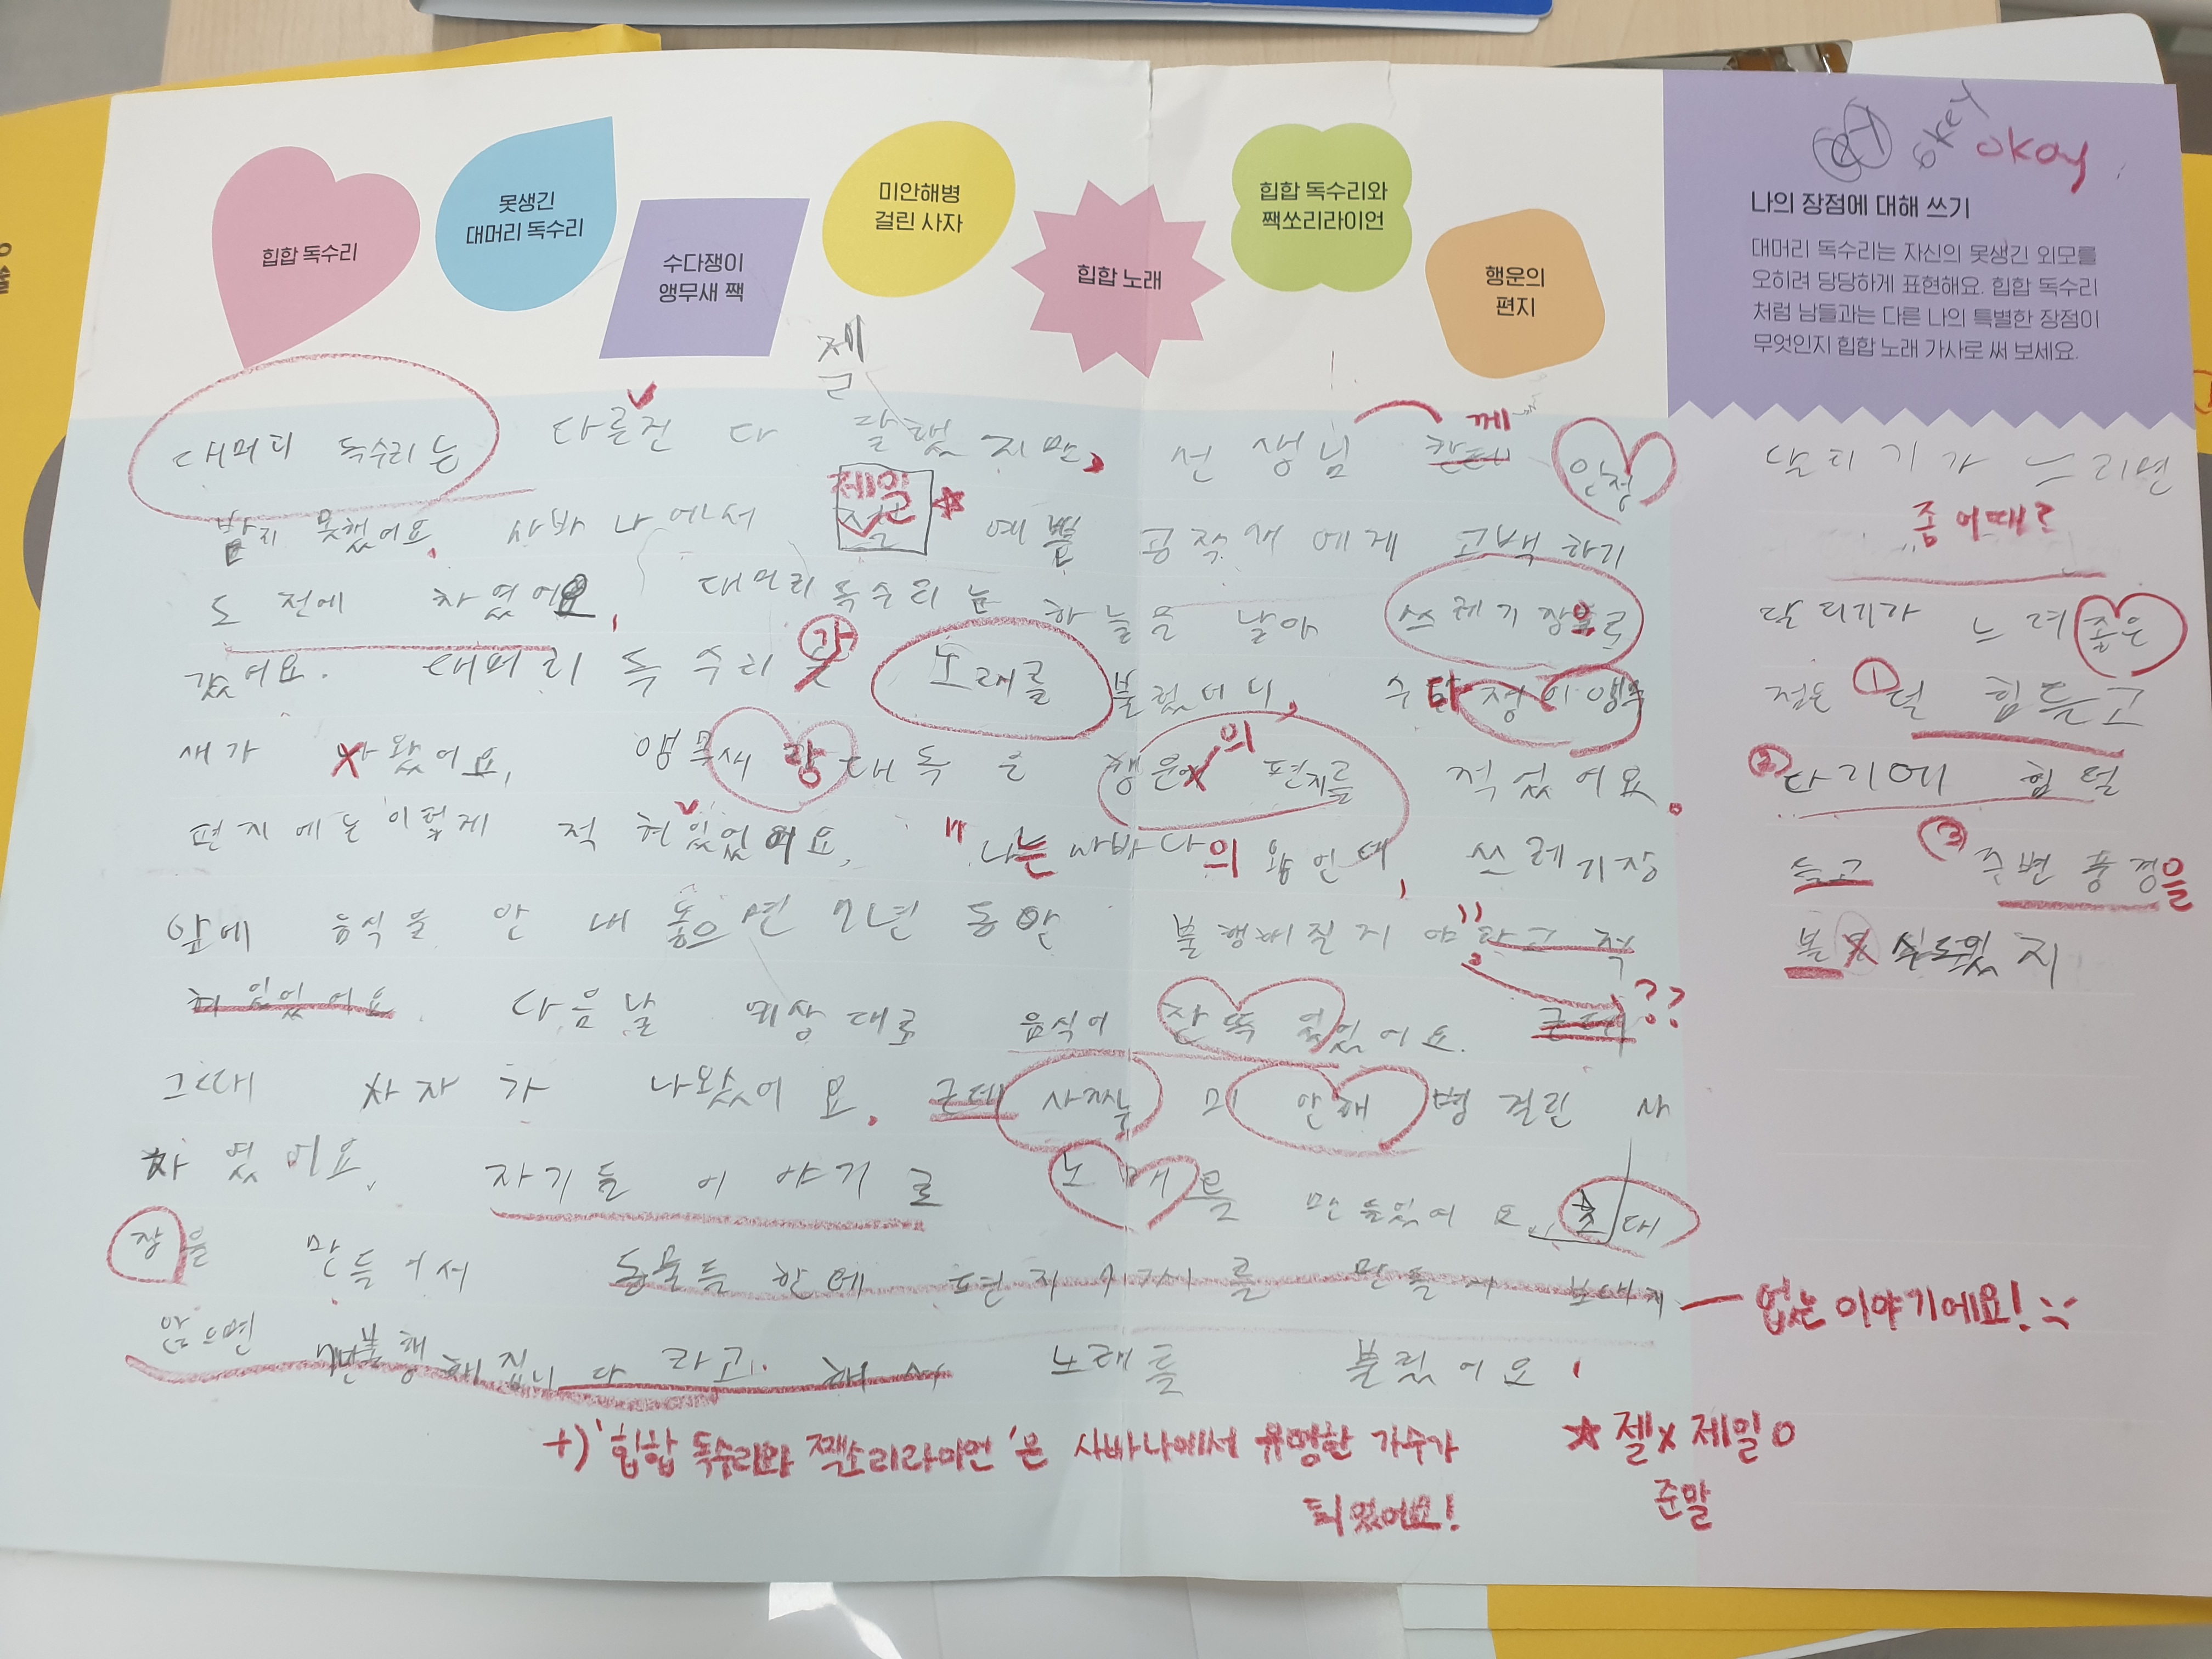 힙합 독수리
못생긴
대머리 독수리
수다쟁이
앵무새 짹
미안해병
걸린 사자
힙합 노래
힙합 독수리와
짹쏘리라이언
행운의
편지
okey okay
나의 장점에 대해 쓰기
대머리 독수리는 자신의 못생긴 외모를
오히려 당당하게 표현해요. 힙합 독수리
처럼 남들과는 다른 나의 특별한 장점이
무엇인지 힙합 노래 가사로 써 보세요.
젤
대머리 독수리는 다른건 다 잘했지만, 선생님 한테 께 인정
받지 못했어요. 사바나에서 제일 예쁜 공작새에게 고백하기
도 전에 차였어요. 대머리 독수리는 하늘을 날아 쓰레기장으로
갔어요. 대머리 독수리가 노래를 불렀더니, 수다쟁이앵무
새가 나왔어요. 앵무새랑 대독은 행운의 편지를 적었어요.
편지에는 이렇게 적혀있었어요. "나는 사바나의 왕인데, 쓰레기장
앞에 음식을 안 내놓으면 7년 동안 불행해질지 야" 라고 적
혀있었어요 다음날 예상대로 음식이 잔뜩 있었어요. 근데 ??
그때 사자가 나왔어요. 근데 사자는 미안해병걸린 사
자였어요. 자기들 이야기로 노래를 만들었어요. 초대
장을 만들어서 동물들한테 편지 를 만들 보내지
않으면 7년불행해집니다 라고. 해서 노래를 불렀어요.
— 없는 이야기에요!
+) '힙합 독수리와 짹쏘리라이언'은 사바나에서 유명한 가수가
되었어요!
☆ 젤X 제일O
준말
달리기가 느리면
좀 어때?
달리기가 느려 좋은
점은 ① 덜 힘들고
② 다리에 힘 덜
들고 ③ 주변 풍경을
볼 수도있지